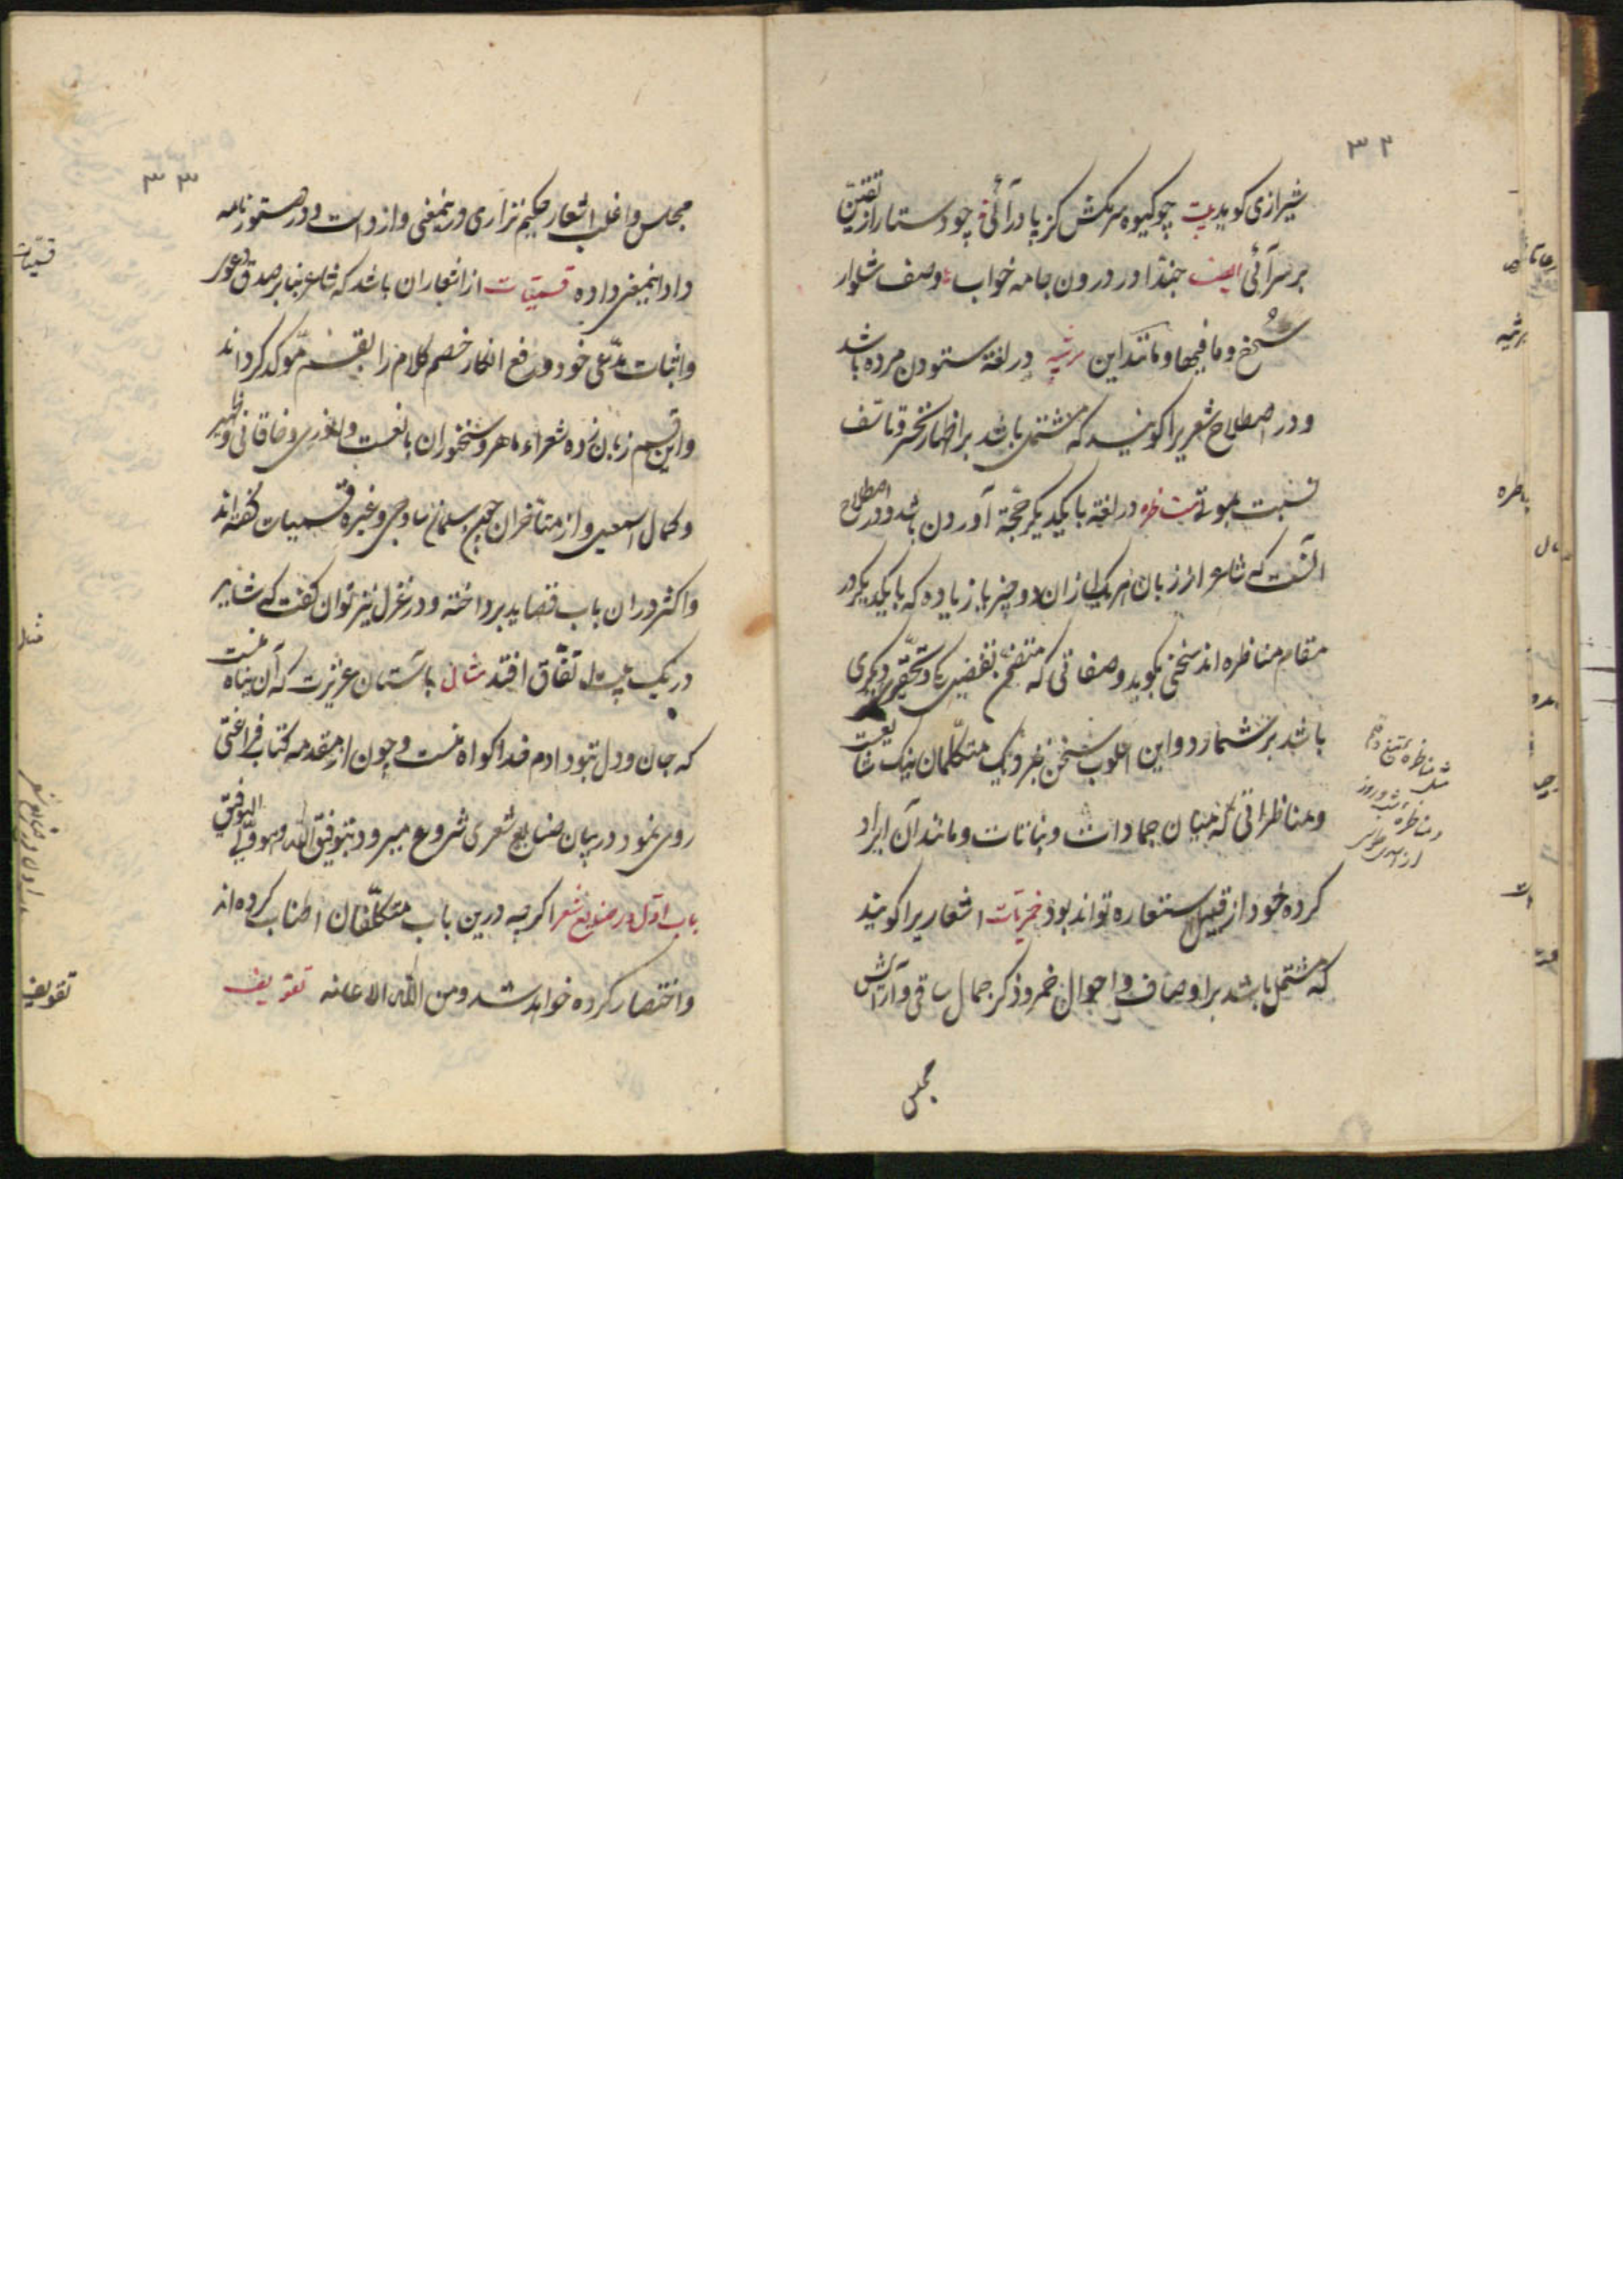 ۳۲
شیرازی کوید بیت چو کیوه سرمکش کز پا درآئی چو دستار از تقین
بر سرآئی ایضا حبذا در درون جامه خواب وصف شلوار
سرخ و ما فیها و مانند این مرثیه در لغة ستودن مرده باشد
و در اصطلاح شعریرا کویند که مشتمل باشد بر اظهار تحسر و تاسف
نسبت بموتی مناظره در لغة با یکدیکر حجّة آوردن باشد و در اصطلاح
آنست که شاعر از زبان هر یک از ان دو چیز یا زیاده که با یکدیکر در
مقام مناظره اند سخنی بکوید و صفاتی که متضمن تفضیل یکی و تحقیر دیکری
باشد بر شمارد و این اسلوب سخن بنزدیک متکلّمان نیک شایعست
و مناظراتی که میان جمادات و نباتات و مانند آن ایراد
کرده خود از قبیل استعاره تواند بود خمریّات اشعاریرا کویند
که مشتمل باشد بر اوصاف و احوال خمر و ذکر جمال ساقی و آرایش
مجلس
مرثیه
مناظره شب و روز
۳۳
مجلس و اغلب اشعار حکیم نزاری درینمعنی وارد است و در دستورنامه
داد اینمعنی داده قسمیّات از اشعار ان باشد که شاعر بنا بر صدق دعوی
و اثبات مدّعی خود و رفع انکار خصم کلام را بقسم مؤکد کرداند
و این قسم زبان زده شعراء ماهر و سخنوران بلاغت و انوری و خاقانی و ظهیر
و کمال اسمعیل و از متأخران خواجه سلمان ساوجی و غیره قسمیات کفته اند
و اکثر در ان باب قصاید پرداخته و در غزل نیز توان کفت که شاید
در یک بیت اتفّاق افتد مثال باستان عزیزت که آن پناه منست
که جان و دل بتو دادم خدا کواه منست و چون از مقدمه کتاب فراغتی
روی نمود در بیان صنایع شعری شروع میرود بتوفیق الله و هو ولی التوفیق
باب اوّل در صنایع شعر اکرچه درین باب متکلّفان اطناب کرده اند
و اختصار کرده خواهد شد و من اللّه الاعانه تفویف
قسمیّات
مثال
تفویف